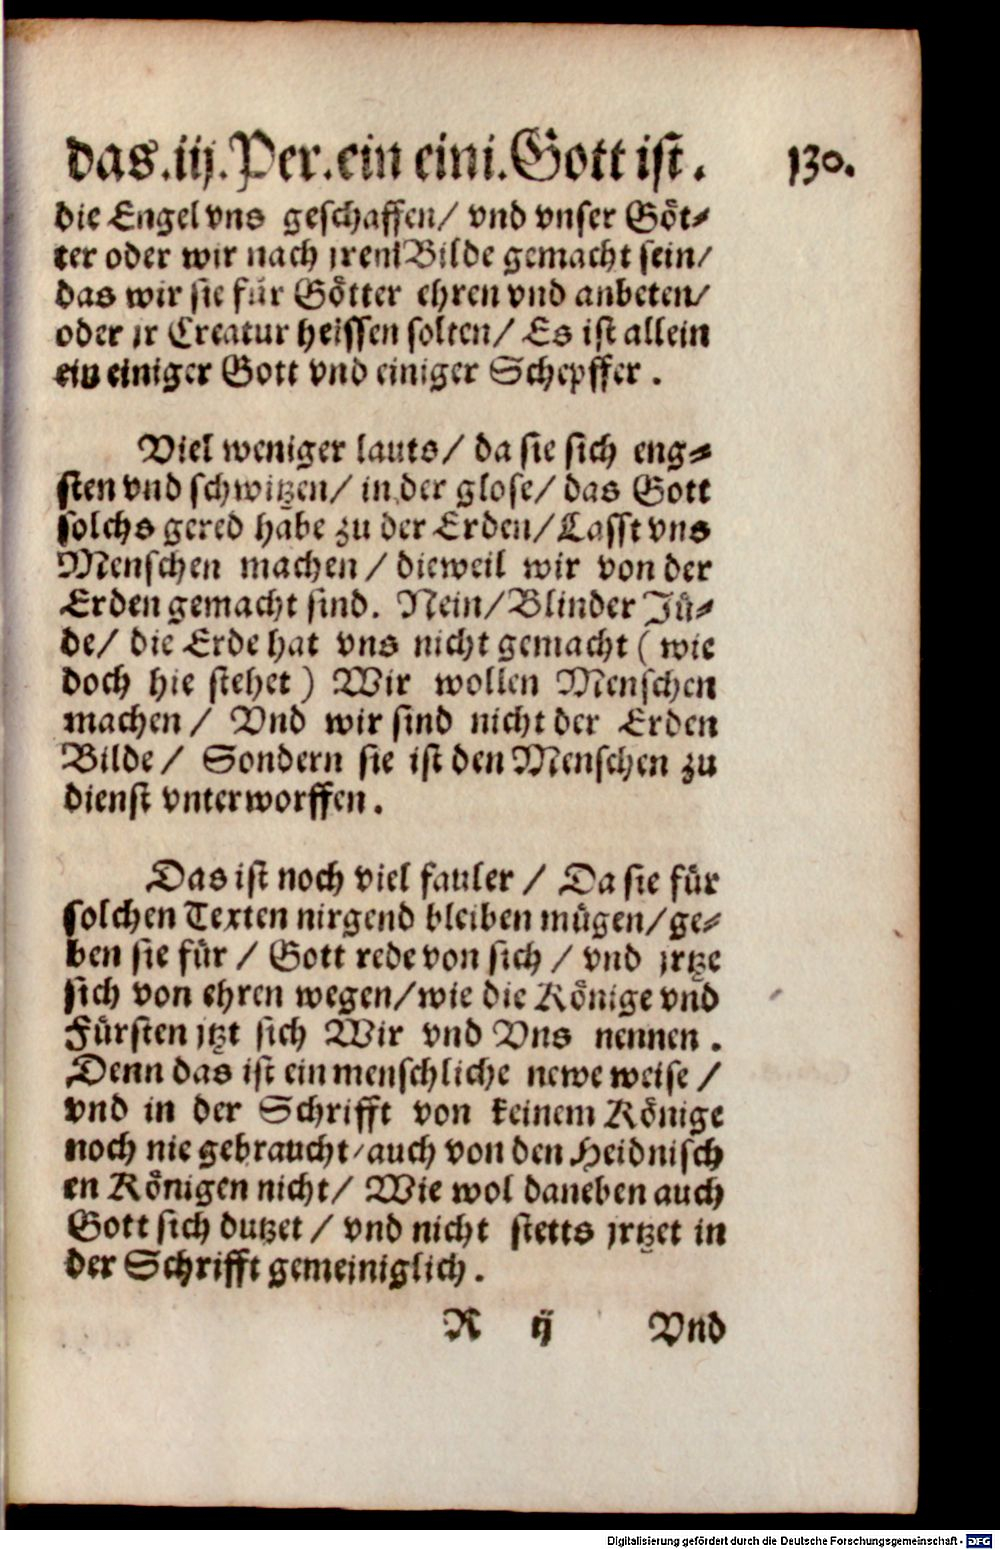 das.iij.Per.ein eini.Gott ist. 130.
die Engel vns geschaffen/ vnd vnser Göt⸗
ter oder wir nach jrem Bilde gemacht sein/
das wir sie für Götter ehren vnd anbeten/
oder jr Creatur heissen solten/ Es ist allein
ein einiger Gott vnd einiger Schepffer.
Viel weniger lauts/ da sie sich eng⸗
sten vnd schwitzen/ in der glose/ das Gott
solchs gered habe zu der Erden/ Lasst vns
Menschen machen/ dieweil wir von der
Erden gemacht sind. Nein/ Blinder Jü⸗
de/ die Erde hat vns nicht gemacht (wie
doch hie stehet) Wir wollen Menschen
machen/ Vnd wir sind nicht der Erden
Bilde/ Sondern sie ist den Menschen zu
dienst vnterworffen.
Das ist noch viel fauler/ Da sie für
solchen Texten nirgend bleiben mügen/ ge⸗
ben sie für/ Gott rede von sich/ vnd jrtze
sich von ehren wegen/ wie die Könige vnd
Fürsten jtzt sich Wir vnd Vns nennen.
Denn das ist ein menschliche newe weise/
vnd in der Schrifft von keinem Könige
noch nie gebraucht/ auch von den Heidnisch
en Königen nicht/ Wie wol daneben auch
Gott sich dutzet/ vnd nicht stetts jrtzet in
der Schrifft gemeiniglich.
R ij Vnd
Digitalisierung gefördert durch die Deutsche Forschungsgemeinschaft - DFG